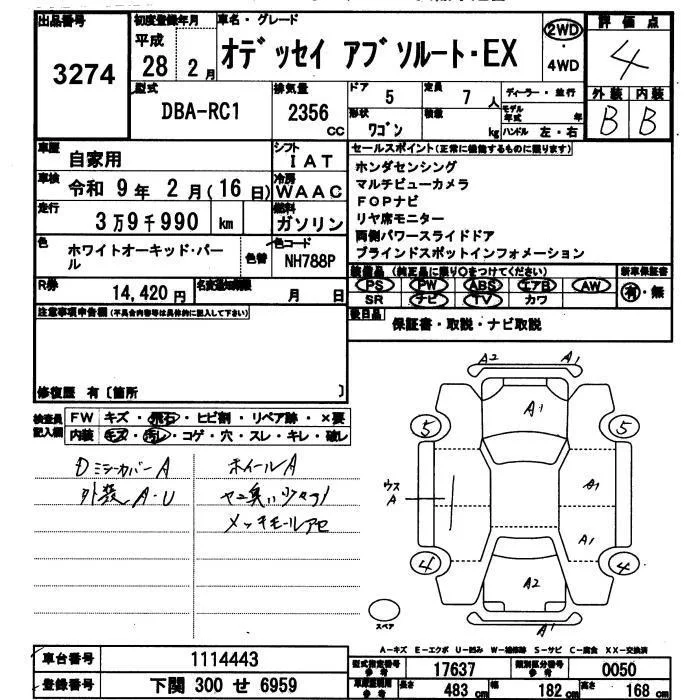 出品番号
3274
初度登録年月
平成
28 2月
車名・グレード
オデッセイ アブソルート・EX
2WD
4WD
評価点
4
外装 内装
B B
型式
DBA-RC1
排気量
2356
CC
ドア
5
定員
7人
形状
ワゴン
積載
kg
ディーラー・並行
モデル年式 年
ハンドル 左・右
車歴
自家用
シフト
IAT
車検
令和 9年 2月(16日)
冷房
WAAC
走行
3万9千990 km
燃料
ガソリン
色
ホワイトオーキッド・パール
色替
色コード
NH788P
R券
14,420円
名変期限
月 日
セールスポイント(正常に機能するものに限ります)
ホンダセンシング
マルチビューカメラ
FOPナビ
リヤ席モニター
両側パワースライドドア
ブラインドスポットインフォメーション
装備品 (純正品に限り○をつけてください)
PS PW ABS エアB AW
SR ナビ TV カワ
新車保証書
有・無
後日品
保証書・取説・ナビ取説
注意事項申告欄(不具合内容等は具体的に記入して下さい)
修復歴 有〔箇所 〕
検査員記入欄
FW キズ・飛石・ヒビ割・リペア跡・×要
内装 キズ・汚れ・コゲ・穴・スレ・キレ・破レ
DミラーカバーA
外装A・U
ホイールA
ヤニ臭い少々有
メッキモールアセ
A2 A1
A1
5 5
ウス
A
A1
A1
4 4
A2
A1
スペア
A-キズ E-エクボ U-凹み W-補修跡 S-サビ C-腐食 XX-交換済
車台番号
1114443
登録番号
下関 300 せ 6959
型式指定番号
参考
17637
類別区分番号
参考
0050
参考
長さ
483 cm
幅
182 cm
高さ
168 cm